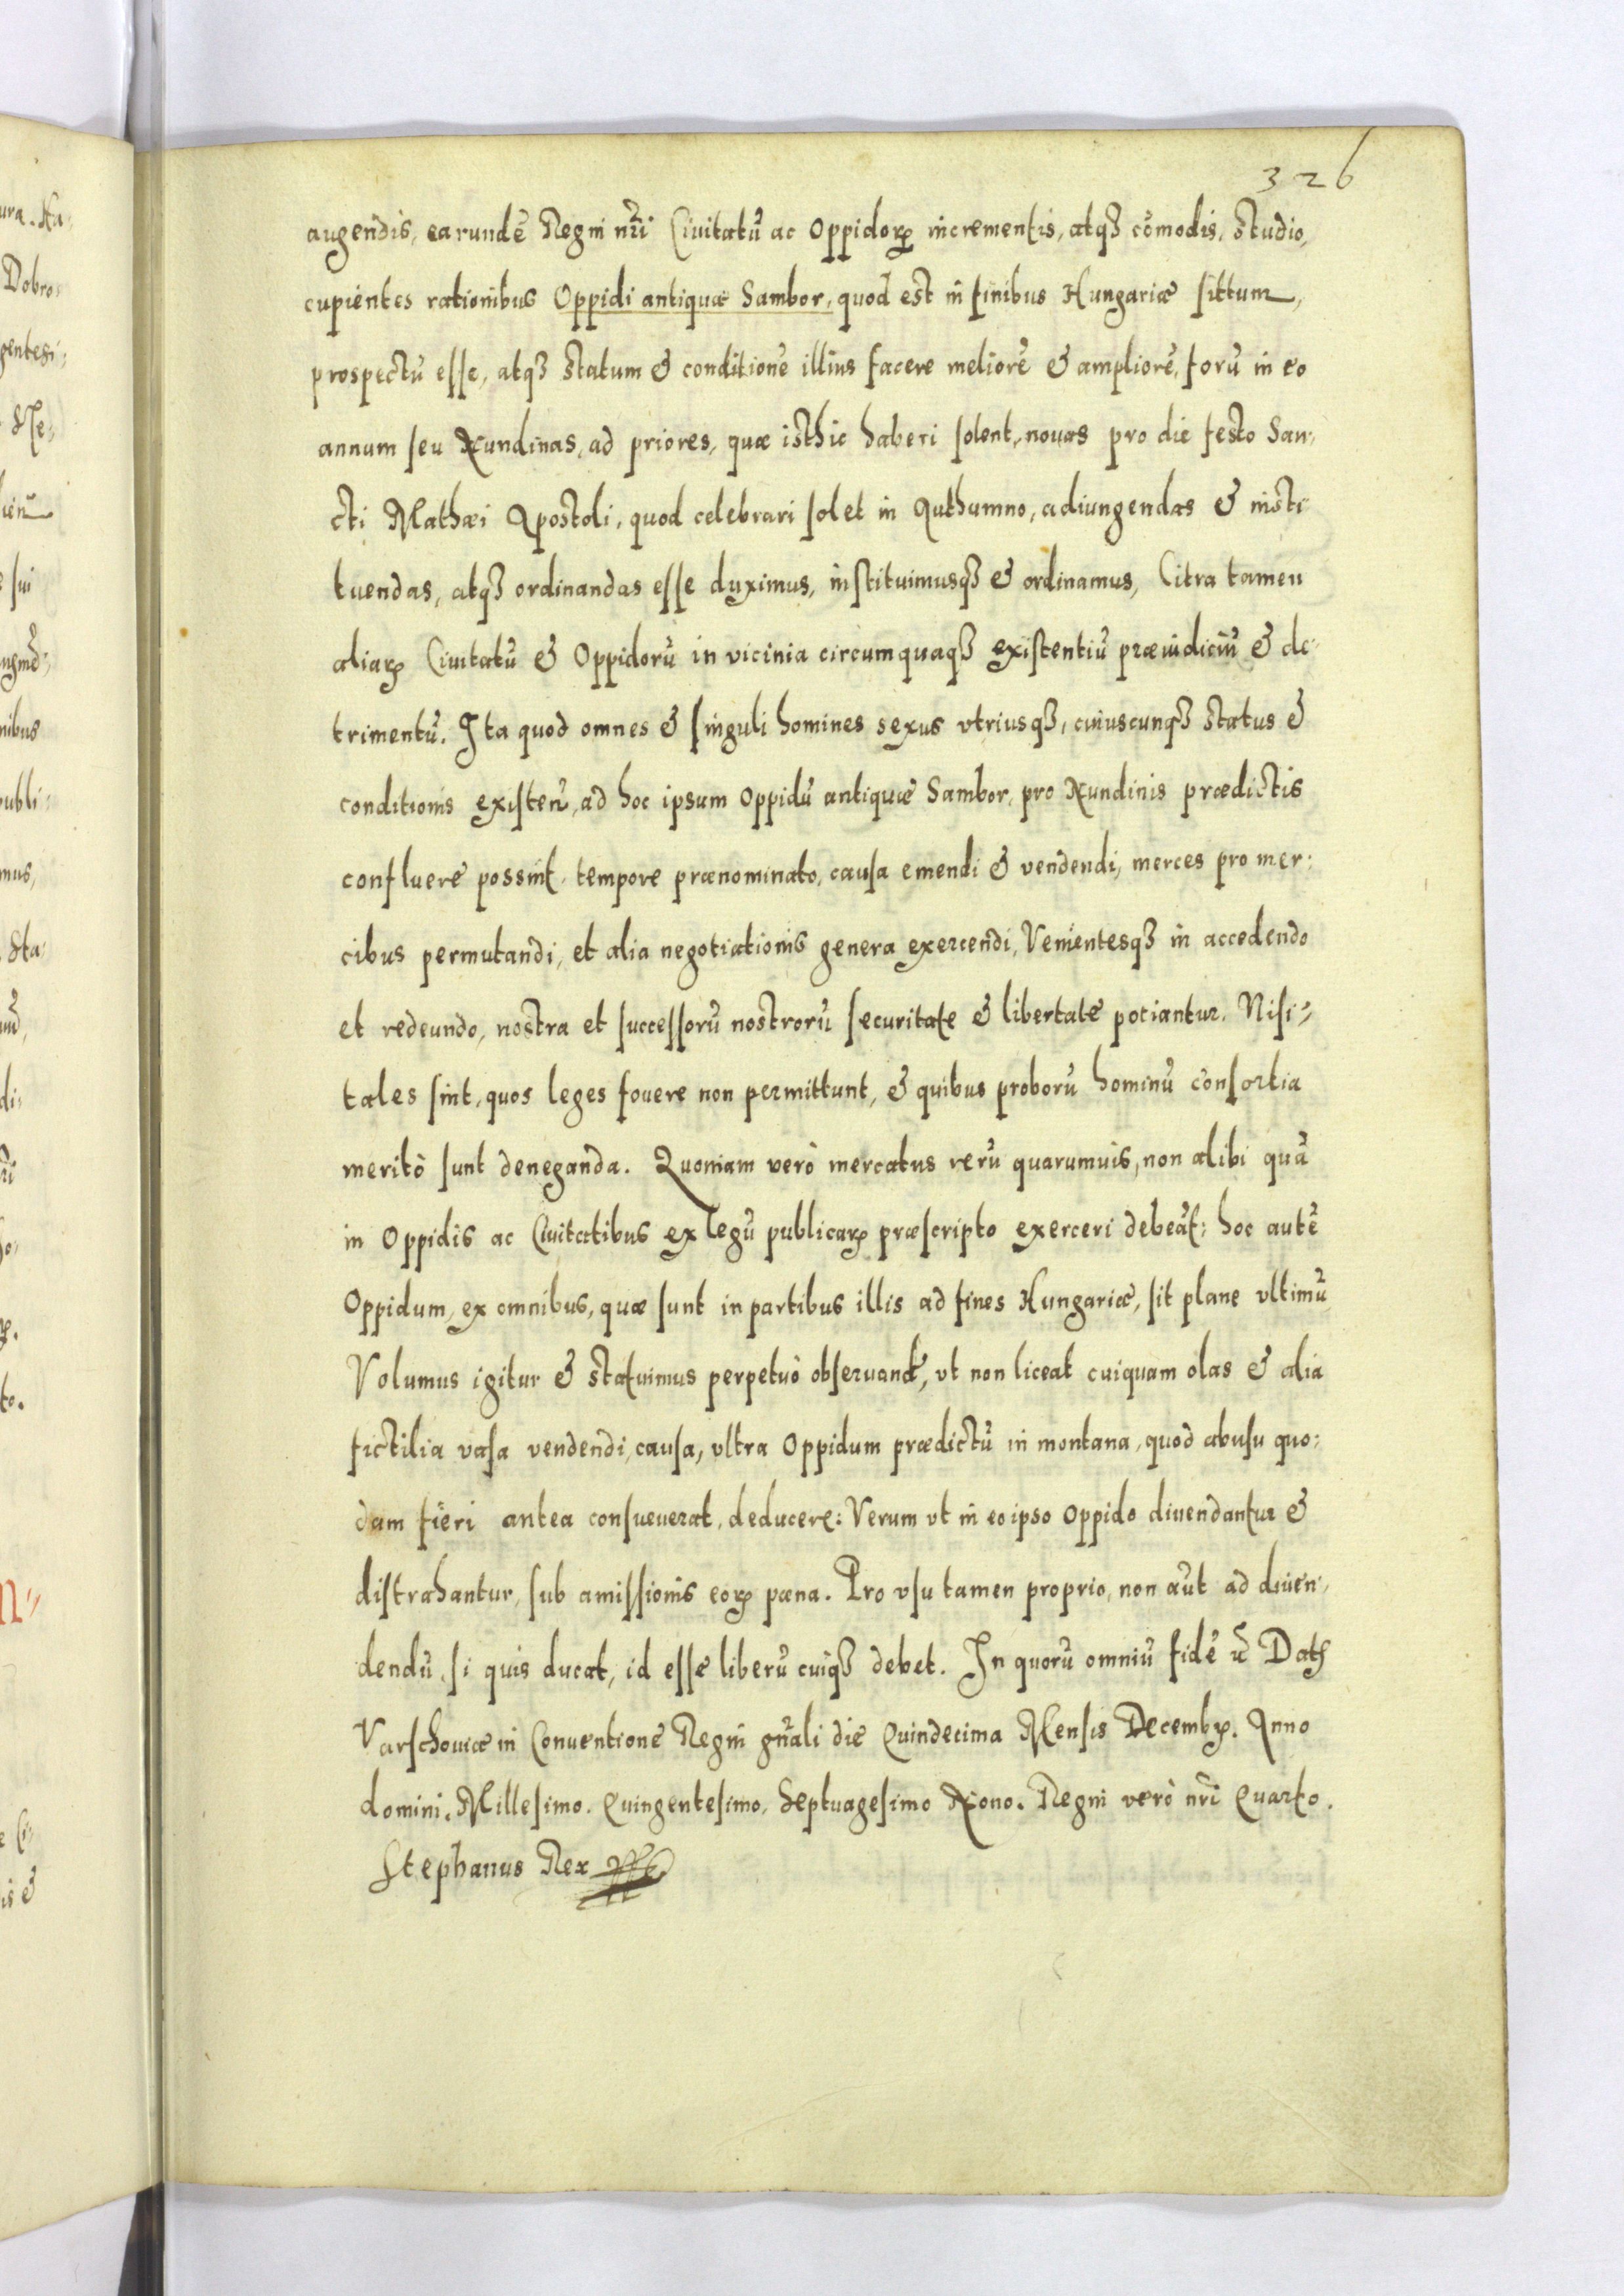 326
augendis, earundē Regni nr̃i Ciuitatū ac Oppidoꝝ incrementis, atqꝫ cōmodis, studio,
cupientes rationibus Oppidi antiquæ Sambor, quod est in finibus Hungariæ sittum,
prospectū esse, atqꝫ statum & conditionē illius facere meliorē & ampliorē, forū in eo
annum seu Nundinas, ad priores, quæ isthic haberi solent, nouas pro die festo San:
cti Mathæi Apostoli, quod celebrari solet in Authumno, adiungendas & insti
tuendas, atqꝫ ordinandas esse duximus, instituimusqꝫ & ordinamus, Citra tamen
aliaꝝ Ciuitatū & Oppidorū in vicinia circumquaqꝫ existentiū præiudiciū & de:
trimentū. Ita quod omnes & singuli homines sexus vtriusqꝫ, cuiuscunqꝫ status &
conditionis existeñ, ad hoc ipsum Oppidū antiquæ Sambor, pro Nundinis prædictis
confluere possint tempore prænominato, causa emendi & vendendi, merces pro mer:
cibus permutandi, et alia negotiationis genera exercendi, Venientesqꝫ in accedendo
et redeundo, nostra et successorū nostrorū securitate & libertate potiantur. Nisi
tales sint, quos leges fouere non permittunt, & quibus proborū hominū consortia
meritò sunt deneganda. Quoniam verò mercatus rerū quarumuis, non alibi quā
in Oppidis ac Ciuitatibus ex legū publicaꝝ præscripto exerceri debeāt: hoc autē
Oppidum, ex omnibus, quæ sunt in partibus illis ad fines Hungariæ, sit plane vltimū
Volumus igitur & statuimus perpetuò obseruand, vt non liceat cuiquam olas & alia
fictilia vasa vendendi, causa, vltra Oppidum prædictū in montana, quod abusu quo:
dam fieri antea consueuerat, deducere: Verum vt in eo ipso Oppido diuendantur &
distrahantur, sub amissionis eoꝝ pæna. Pro vsu tamen proprio, non aut ad diuen:
dendū, si quis ducat, id esse liberū cuiqꝫ debet. In quorū omniū fidē Datꝭ
Varschouiæ in Conuentione Regni gñali die Quindecima Mensis Decembꝝ. Anno
domini. Millesimo. Quingentesimo. Septuagesimo Nono. Regni verò nr̃i Quarto.
Stephanus Rex